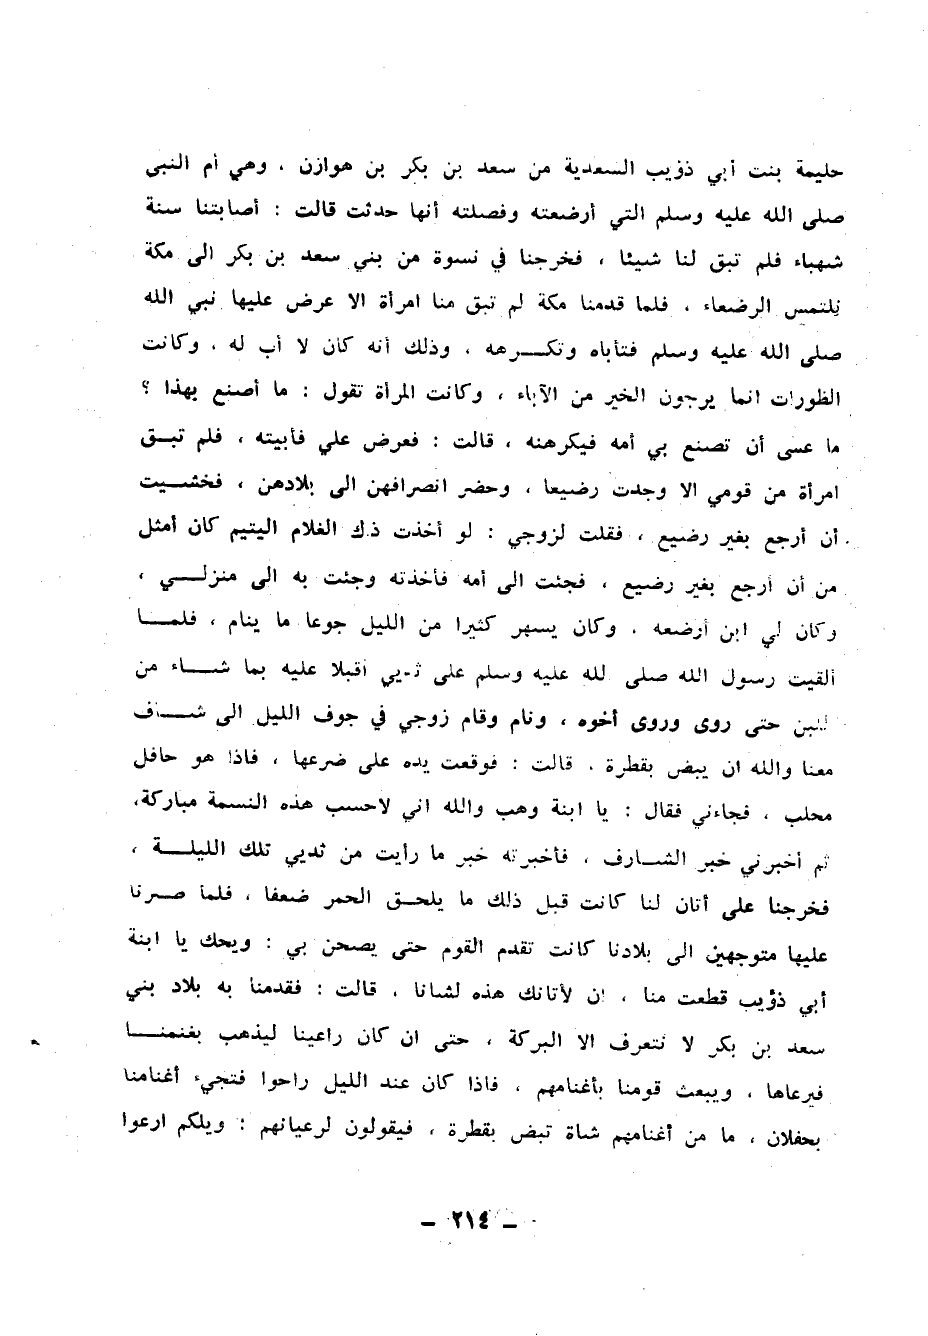 حليمة بنت أبي ذؤيب السعدية من سعد بن بكر بن هوازن ، وهي أم النبي
صلى الله عليه وسلم التي أرضعته وفصلته أنها حدثت قالت : أصابتنا سنة
شهباء فلم تبق لنا شيئا ، فخرجنا في نسوة من بني سعد بن بكر الى مكة
نلتمس الرضعاء ، فلما قدمنا مكة لم تبق منا امرأة الا عرض عليها نبي الله
صلى الله عليه وسلم فتأباه وتكرهه ، وذلك أنه كان لا أب له ، وكانت
الظورات انما يرجون الخير من الآباء ، وكانت المرأة تقول : ما أصنع بهذا ؟
ما عسى أن تصنع بي أمه فيكرهنه ، قالت : فعرض علي فأبيته ، فلم تبق
امرأة من قومي الا وجدت رضيعا ، وحضر انصرافهن الى بلادهن ، فخشيت
أن أرجع بغير رضيع ، فقلت لزوجي : لو أخذت ذلك الغلام اليتيم كان أمثل
من أن أرجع بغير رضيع ، فجئت الى أمه فأخذته وجئت به الى منزلي ،
وكان لي ابن أرضعه ، وكان يسهر كثيرا من الليل جوعا ما ينام ، فلما
ألقيت رسول الله صلى الله عليه وسلم على ثديي أقبلا عليه بما شاء من
اللبن حتى روى وروى أخوه ، ونام وقام زوجي في جوف الليل الى شاف
معنا والله ان يبض بقطرة ، قالت : فوقعت يده على ضرعها ، فاذا هو حافل
محلب ، فجاءني فقال : يا ابنة وهب والله اني لاحسب هذه النسمة مباركة،
ثم أخبرني خبر الشارف ، فأخبرته خبر ما رأيت من ثديي تلك الليلة ،
فخرجنا على أتان لنا كانت قبل ذلك ما يلحق الحمر ضعفا ، فلما صرنا
عليها متوجهين الى بلادنا كانت تقدم القوم حتى يصحن بي : ويحك يا ابنة
أبي ذؤيب قطعت منا ، ان لأتانك هذه لشانا ، قالت : فقدمنا به بلاد بني
سعد بن بكر لا نتعرف الا البركة ، حتى ان كان راعينا ليذهب بغنمنا
فيرعاها ، ويبعث قومنا بأغنامهم ، فاذا كان عند الليل راحوا فتجيء أغنامنا
بحفلان ، ما من أغنامهم شاة تبض بقطرة ، فيقولون لرعيانهم : ويلكم ارعوا
– ٢١٤ –